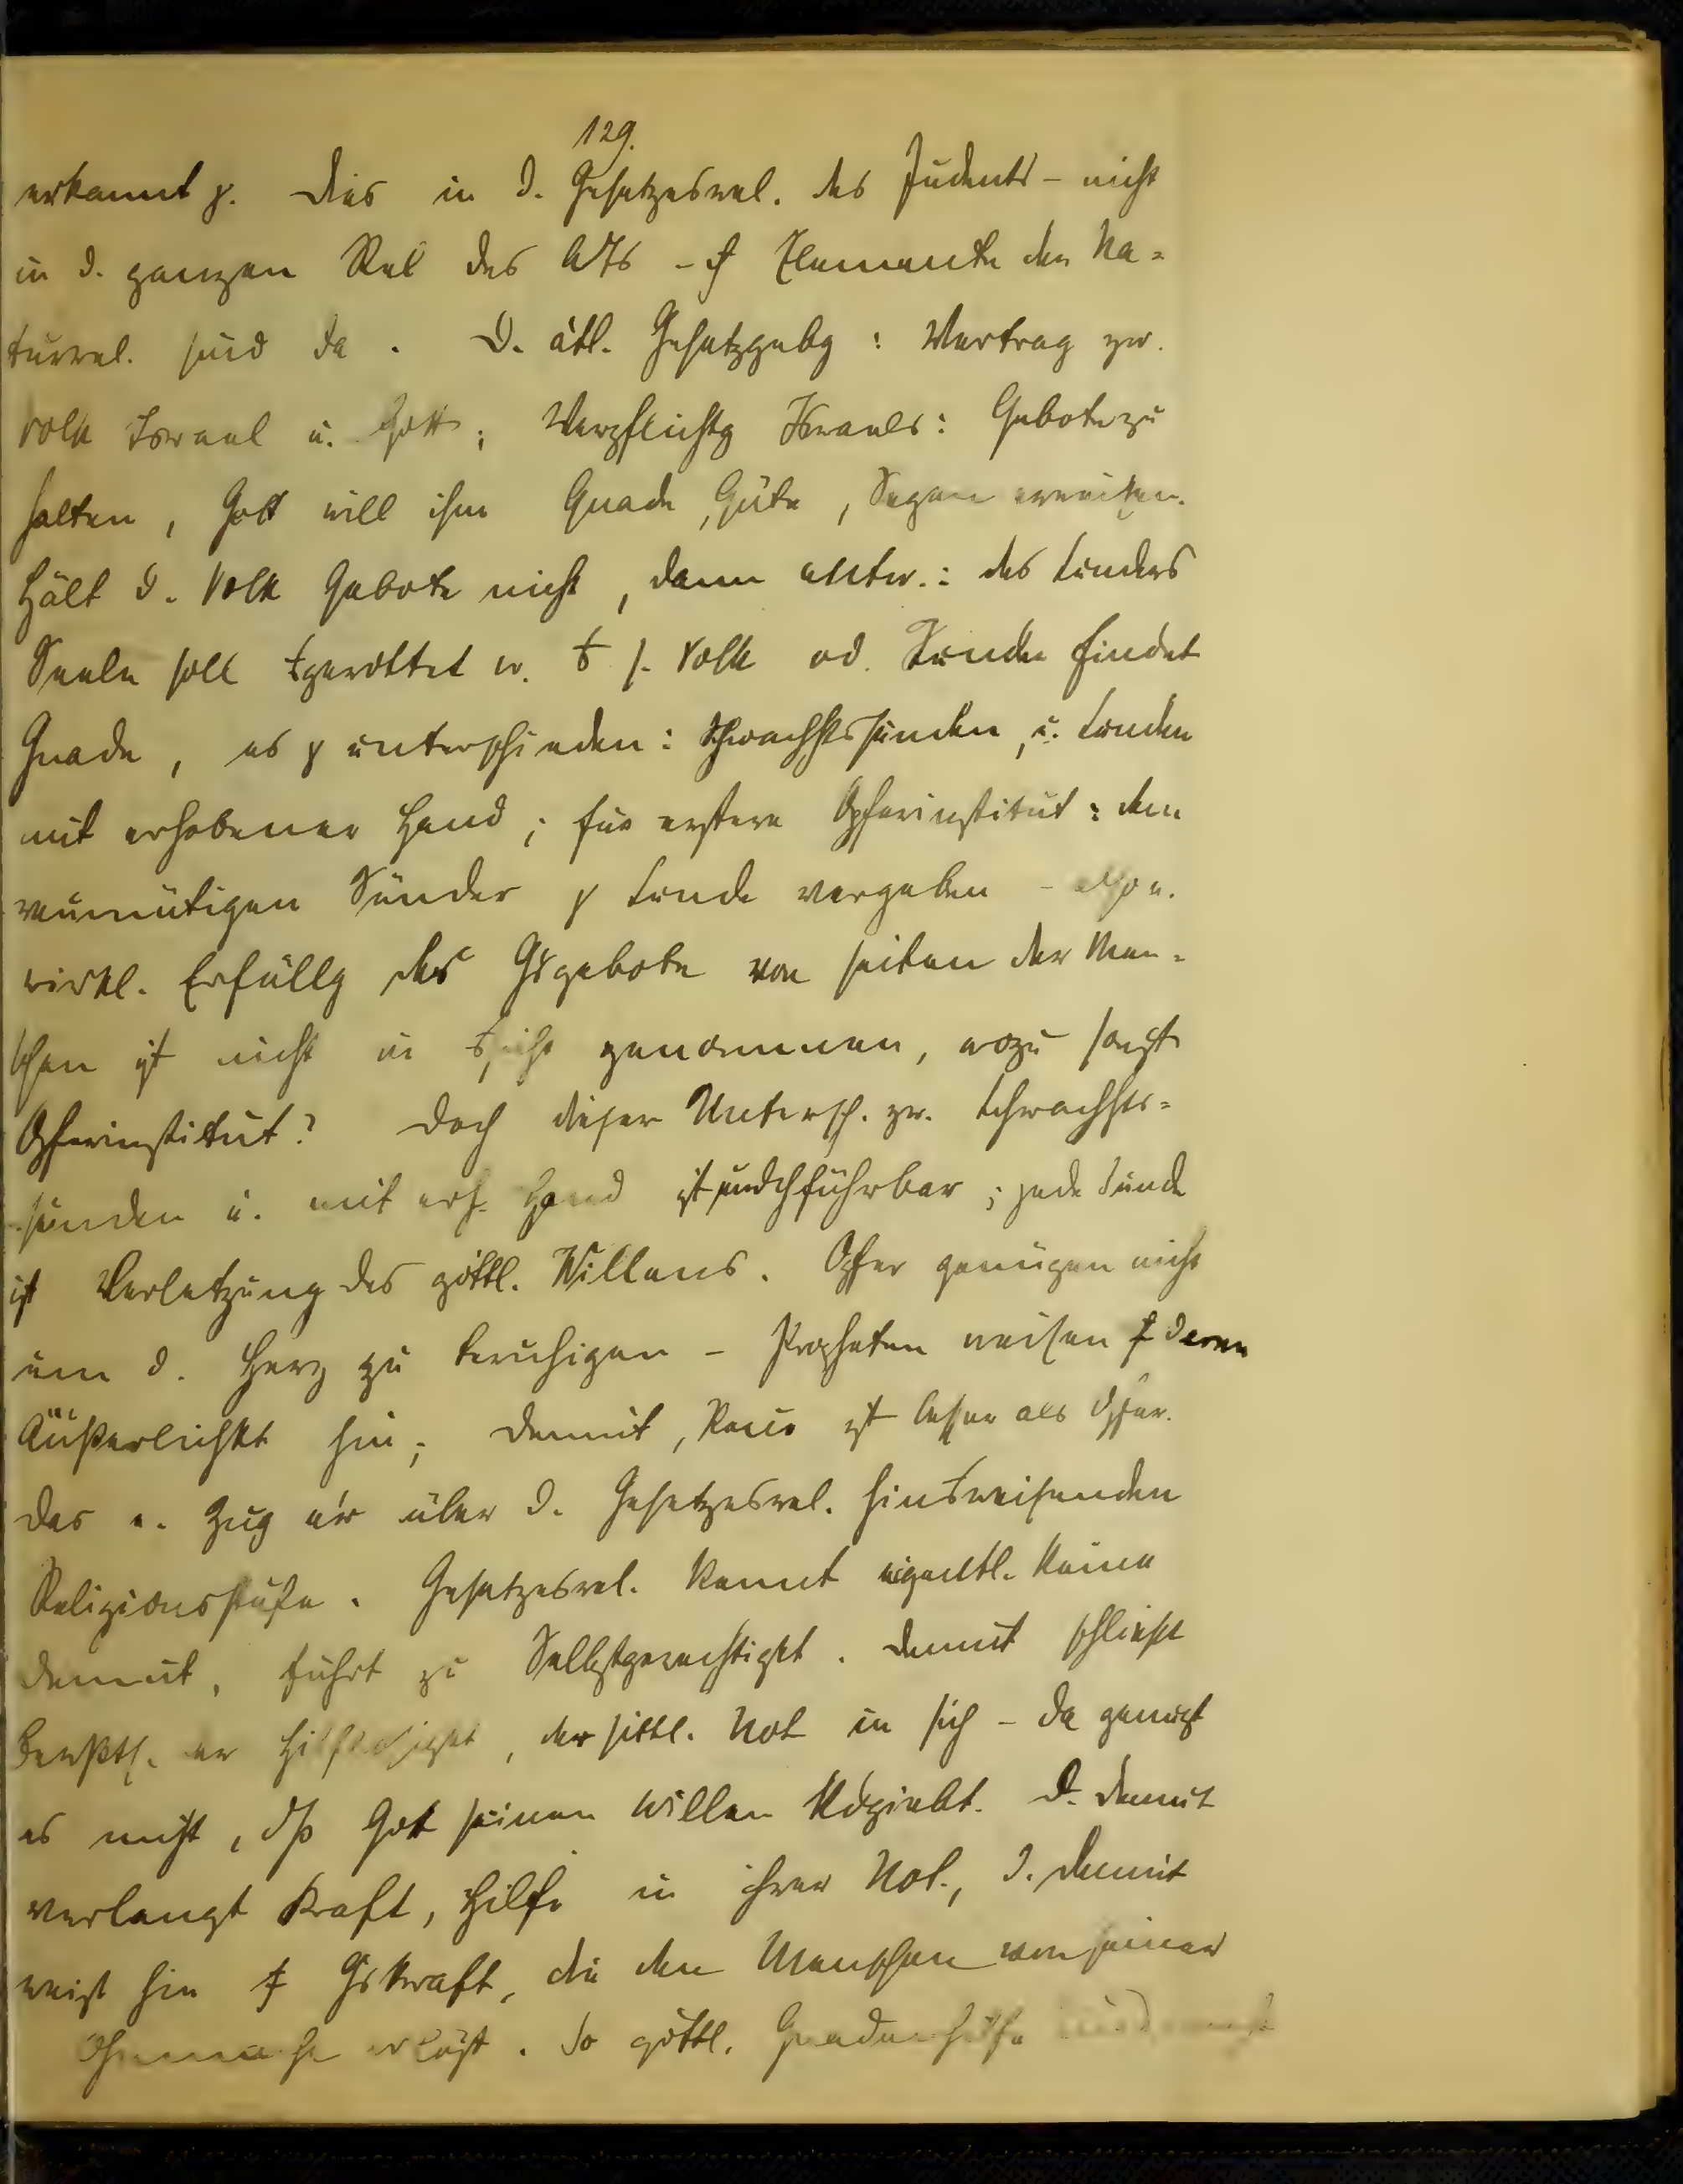 129.
erkannt w. Dies in d. Gesetzesrel. des Judents - nicht
in d. ganzen Rel des ATs - Elemente der Na=
turrel. sind da. D. atl. Gesetzgebg: Vertrag zw.
Volk Israel u. Gott; Verpflichtg Israels: Gebote zu
halten, Gott will ihm Gnade, Güte, Segen erweisen.
Hält d. Volk Gebote nicht, dann entw.: des Sünders
Seele soll ausgerottet w. aus s. Volk od. Sünder findet
Gnade, es w unterschieden: Schwachhtssünden, u. Sünden
mit erhobener Hand; für erstere Opferinstitut: dem
reumütigen Sünder w Sünde vergeben - also e.
wirkl. Erfüllg des Gsgebote von seiten der Men=
schen ist nicht in genommen, wozu sonst
Opferinstitut? Doch dieser Untersch. zw. Schwachhts=
sünden u. mit erh. Hand ist undchführbar; jede Sünde
ist Verletzung des göttl. Willens. Opfer genügen nicht
um d. Herz zu beruhigen - Propheten weisen auf deren
Äußerlichkt hin; Demut, Reue ist besser als Opfer.
Das e. Zug er über d. Gesetzesrel. hinausweisenden
Religionsstufe. Gesetzesrel. kennt eigentl. keine
Demut, führt zu Selbstgerechtigkt. Demut schließt
Bewßts. der Hilfsbedürftigkt, der sittl. Not in sich - da genügt
es nicht, dß Gott seinen Willen kdgiebt. D. Demut
verlangt Kraft, Hilfe in ihrer Not, d. Demut
weist hin auf Gskraft, die den Menschen von seiner
Ohnmacht erlöst. So göttl. Gnadenhilfe